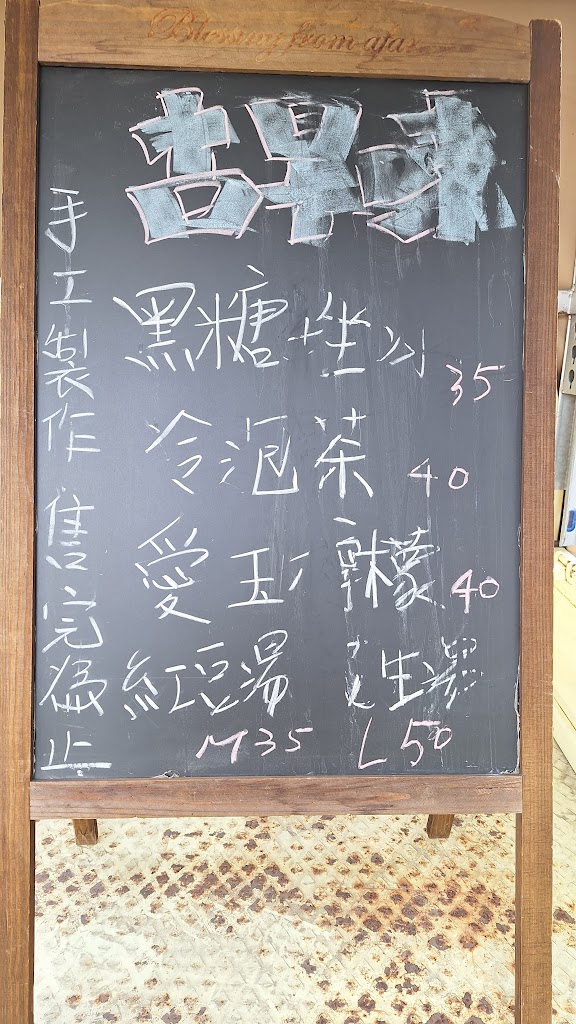 Blessing from afar
古早味
黑糖挫冰 35
冷泡茶 40
愛玉 檸檬 40
紅豆湯 生湯
M35 L50
手工製作 售完為止